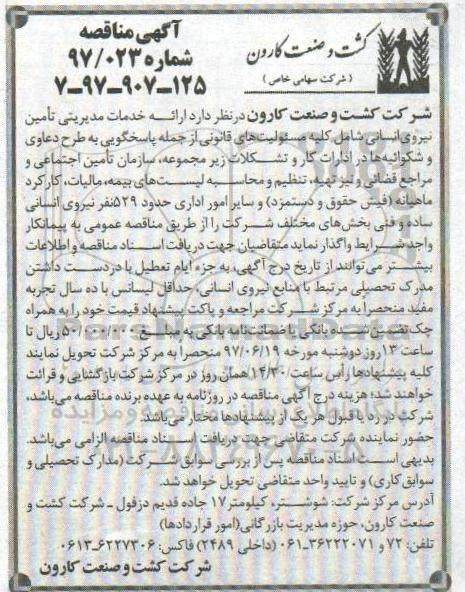 آگهی مناقصه
شماره ۹۷/۰۲۳
۷-۹۷-۹۰۷-۱۲۵
کشت و صنعت کارون
( شرکت سهامی خاص )
شرکت کشت و صنعت کارون در نظر دارد ارائه خدمات مدیریتی تأمین
نیروی انسانی شامل کلیه مسئولیت‌های قانونی از جمله پاسخگویی به طرح دعاوی
و شکوائیه‌ها در ادارات کار و تشکلات زیر مجموعه، سازمان تأمین اجتماعی و
مراجع قضائی و نیز تهیه، تنظیم و محاسبه لیست‌های بیمه، مالیات، کارکرد
ماهیانه (فیش حقوق و دستمزد) و سایر امور اداری حدود ۵۲۹نفر نیروی انسانی
ساده و فنی بخش‌های مختلف شرکت را از طریق مناقصه عمومی به پیمانکار
واجد شرایط واگذار نماید متقاضیان جهت دریافت اسناد مناقصه و اطلاعات
بیشتر می‌توانند از تاریخ درج آگهی، به جزء ایام تعطیل با در دست داشتن
مدرک تحصیلی مرتبط با منابع نیروی انسانی، حداقل لیسانس با ده سال تجربه
مفید منحصرا به مرکز شرکت مراجعه و پاکت پیشنهاد قیمت خود را به همراه
چک تضمین شده بانکی یا ضمانت‌نامه بانکی به مبلغ ریال تا
ساعت ۱۳ روز دوشنبه مورخه ۹۷/۰۶/۱۹ منحصرا به مرکز شرکت تحویل نمایند
کلیه پیشنهادها رأس ساعت ۱۴/۳۰ همان روز در مرکز شرکت بازگشایی و قرائت
خواهند شد؛ هزینه درج آگهی مناقصه در روزنامه به عهده برنده مناقصه می‌باشد،
شرکت در رد یا قبول هر یک از پیشنهادها مختار می‌باشد.
حضور نماینده شرکت متقاضی جهت دریافت اسناد مناقصه الزامی می‌باشد.
بدیهی است اسناد مناقصه پس از بررسی سوابق شرکت (مدارک تحصیلی و
سوابق کاری) و تایید واحد متقاضی تحویل خواهد شد.
آدرس مرکز شرکت: شوشتر، کیلومتر۱۷ جاده قدیم دزفول ـ شرکت کشت و
صنعت کارون، حوزه مدیریت بازرگانی(امور قراردادها)
تلفن: ۷۲ و ۳۶۲۲۲۰۷۱-۰۶۱ (داخلی ۲۴۸۹) فاکس: ۶۲۲۷۳۰۶-۰۶۱۳
شرکت کشت و صنعت کارون